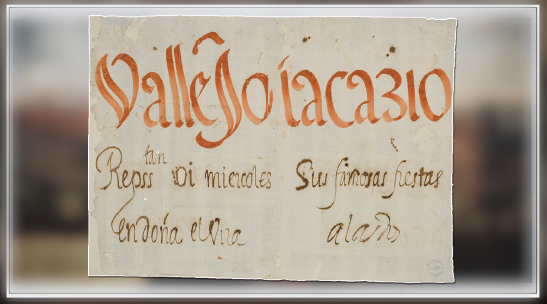 Vallejo iacazio
Repsstan oi miercoles Sus famosas fiestas
En doña elvira alas dos